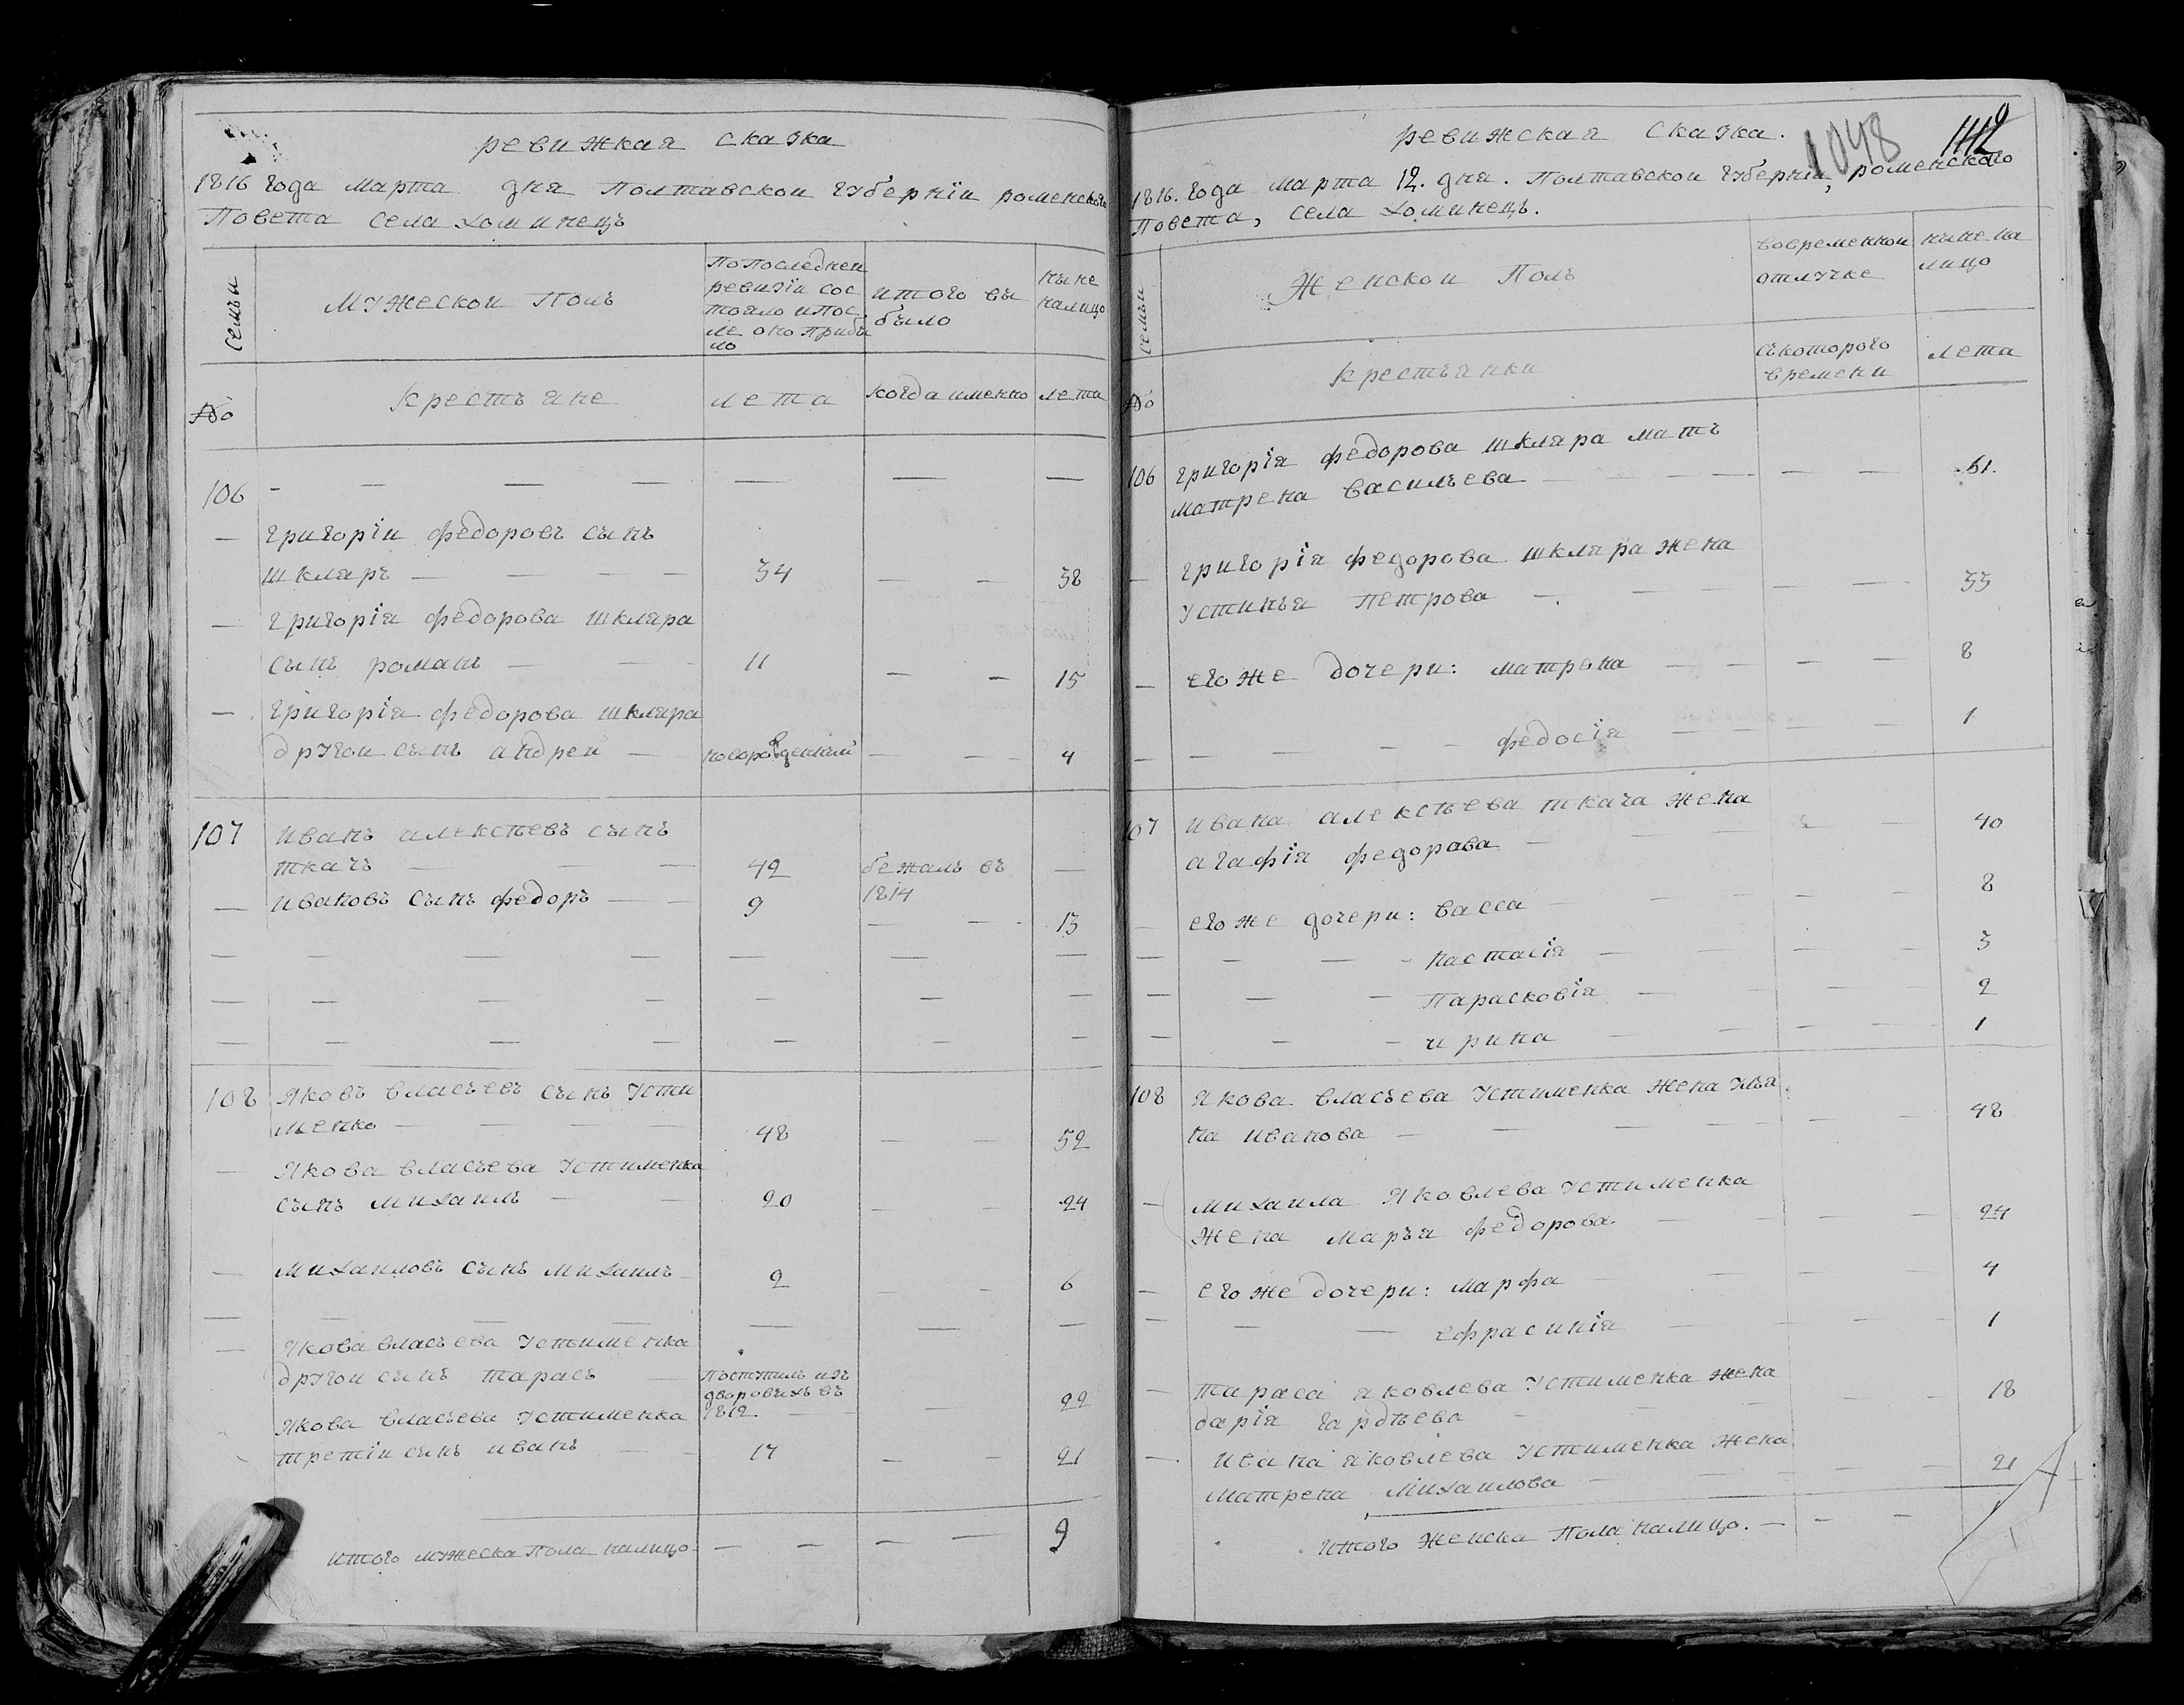 ревижкая сказка
1816 года марта дня Полтавской губернїи роменского
Повета села хоминецъ
семьи
Мужеской Полъ
По последней
ревизїи сос
тояло и пос
ле оно прибы
ло
итого вы
было
ныне
налицо
№
Крестъяне
лета
когда именно
лета
106 - — — — — — —
— григорїи федоровъ сынъ
шкляръ — — — — 34 — — 38
— григорїя федорова шкляра
сынъ романъ — — — 11 — — 15
— григорїя федорова шкляра
другои сынъ андреи — новорожденный — — 4
107 иванъ алексѣевъ сынъ
ткачъ — — — 42 бежалъ въ 1814 —
— ивановъ сынъ федоръ — — 9 — — 13
— — — — — — —
— — — — — — —
— — — — — — —
108 Яковъ власъевъ сынъ усти
менко — — — — 48 — — 52
— Якова власъева устименка
сынъ михаилъ — — 20 — — 24
— михаиловъ сынъ михаилъ 2 — — 6
— — — — — — —
— Якова власъева устименка
другои сынъ тарасъ — поступилъ изъ
дворовыхъ въ
1812 — — — 22
Якова власъева устименка
третїи сынъ иванъ — — 17 — — 21
итого мужеска пола налицо — — — — 9
1048
1112
ревижская сказка.
1816. года марта 12. дня. Полтавской губернїи, роменского
Повета, села хоминецъ.
семьи
Женской Полъ
вовременной
отлучке
ныне на
лицо
№
Крестъянки
съкоторого
времени
лета
106 григорїя федорова шкляра матъ
матрена василъева — — — — — 61.
— григорїя федорова шкляра жена
устинъя петрова — — — — — 33
— его же дочери: матрона — — — — 8
— — — — — федосїя — — — — 1
107 ивана алексѣева ткача жена
агафїя федорова — — — 40
— его же дочери: васса — — — — 8
— — — - настасїя — — — — 3
— — — парасковїя — — — — 2
— — — ирина — — — — 1
108 Якова власъева устименка жена улья
на иванова — — — — — — 48
— михаила Яковлева устименка
жена марья федорова — — — — 24
— его же дочери: марфа — — — — 4
— — — ефрасинїя — — — — 1
— тараса яковлева устименка жена
дарїя гардѣева — — — — 18
— ивана яковлева устименка жена
матрена михаилова — — — — 21
итого женска пола налицо. — — —